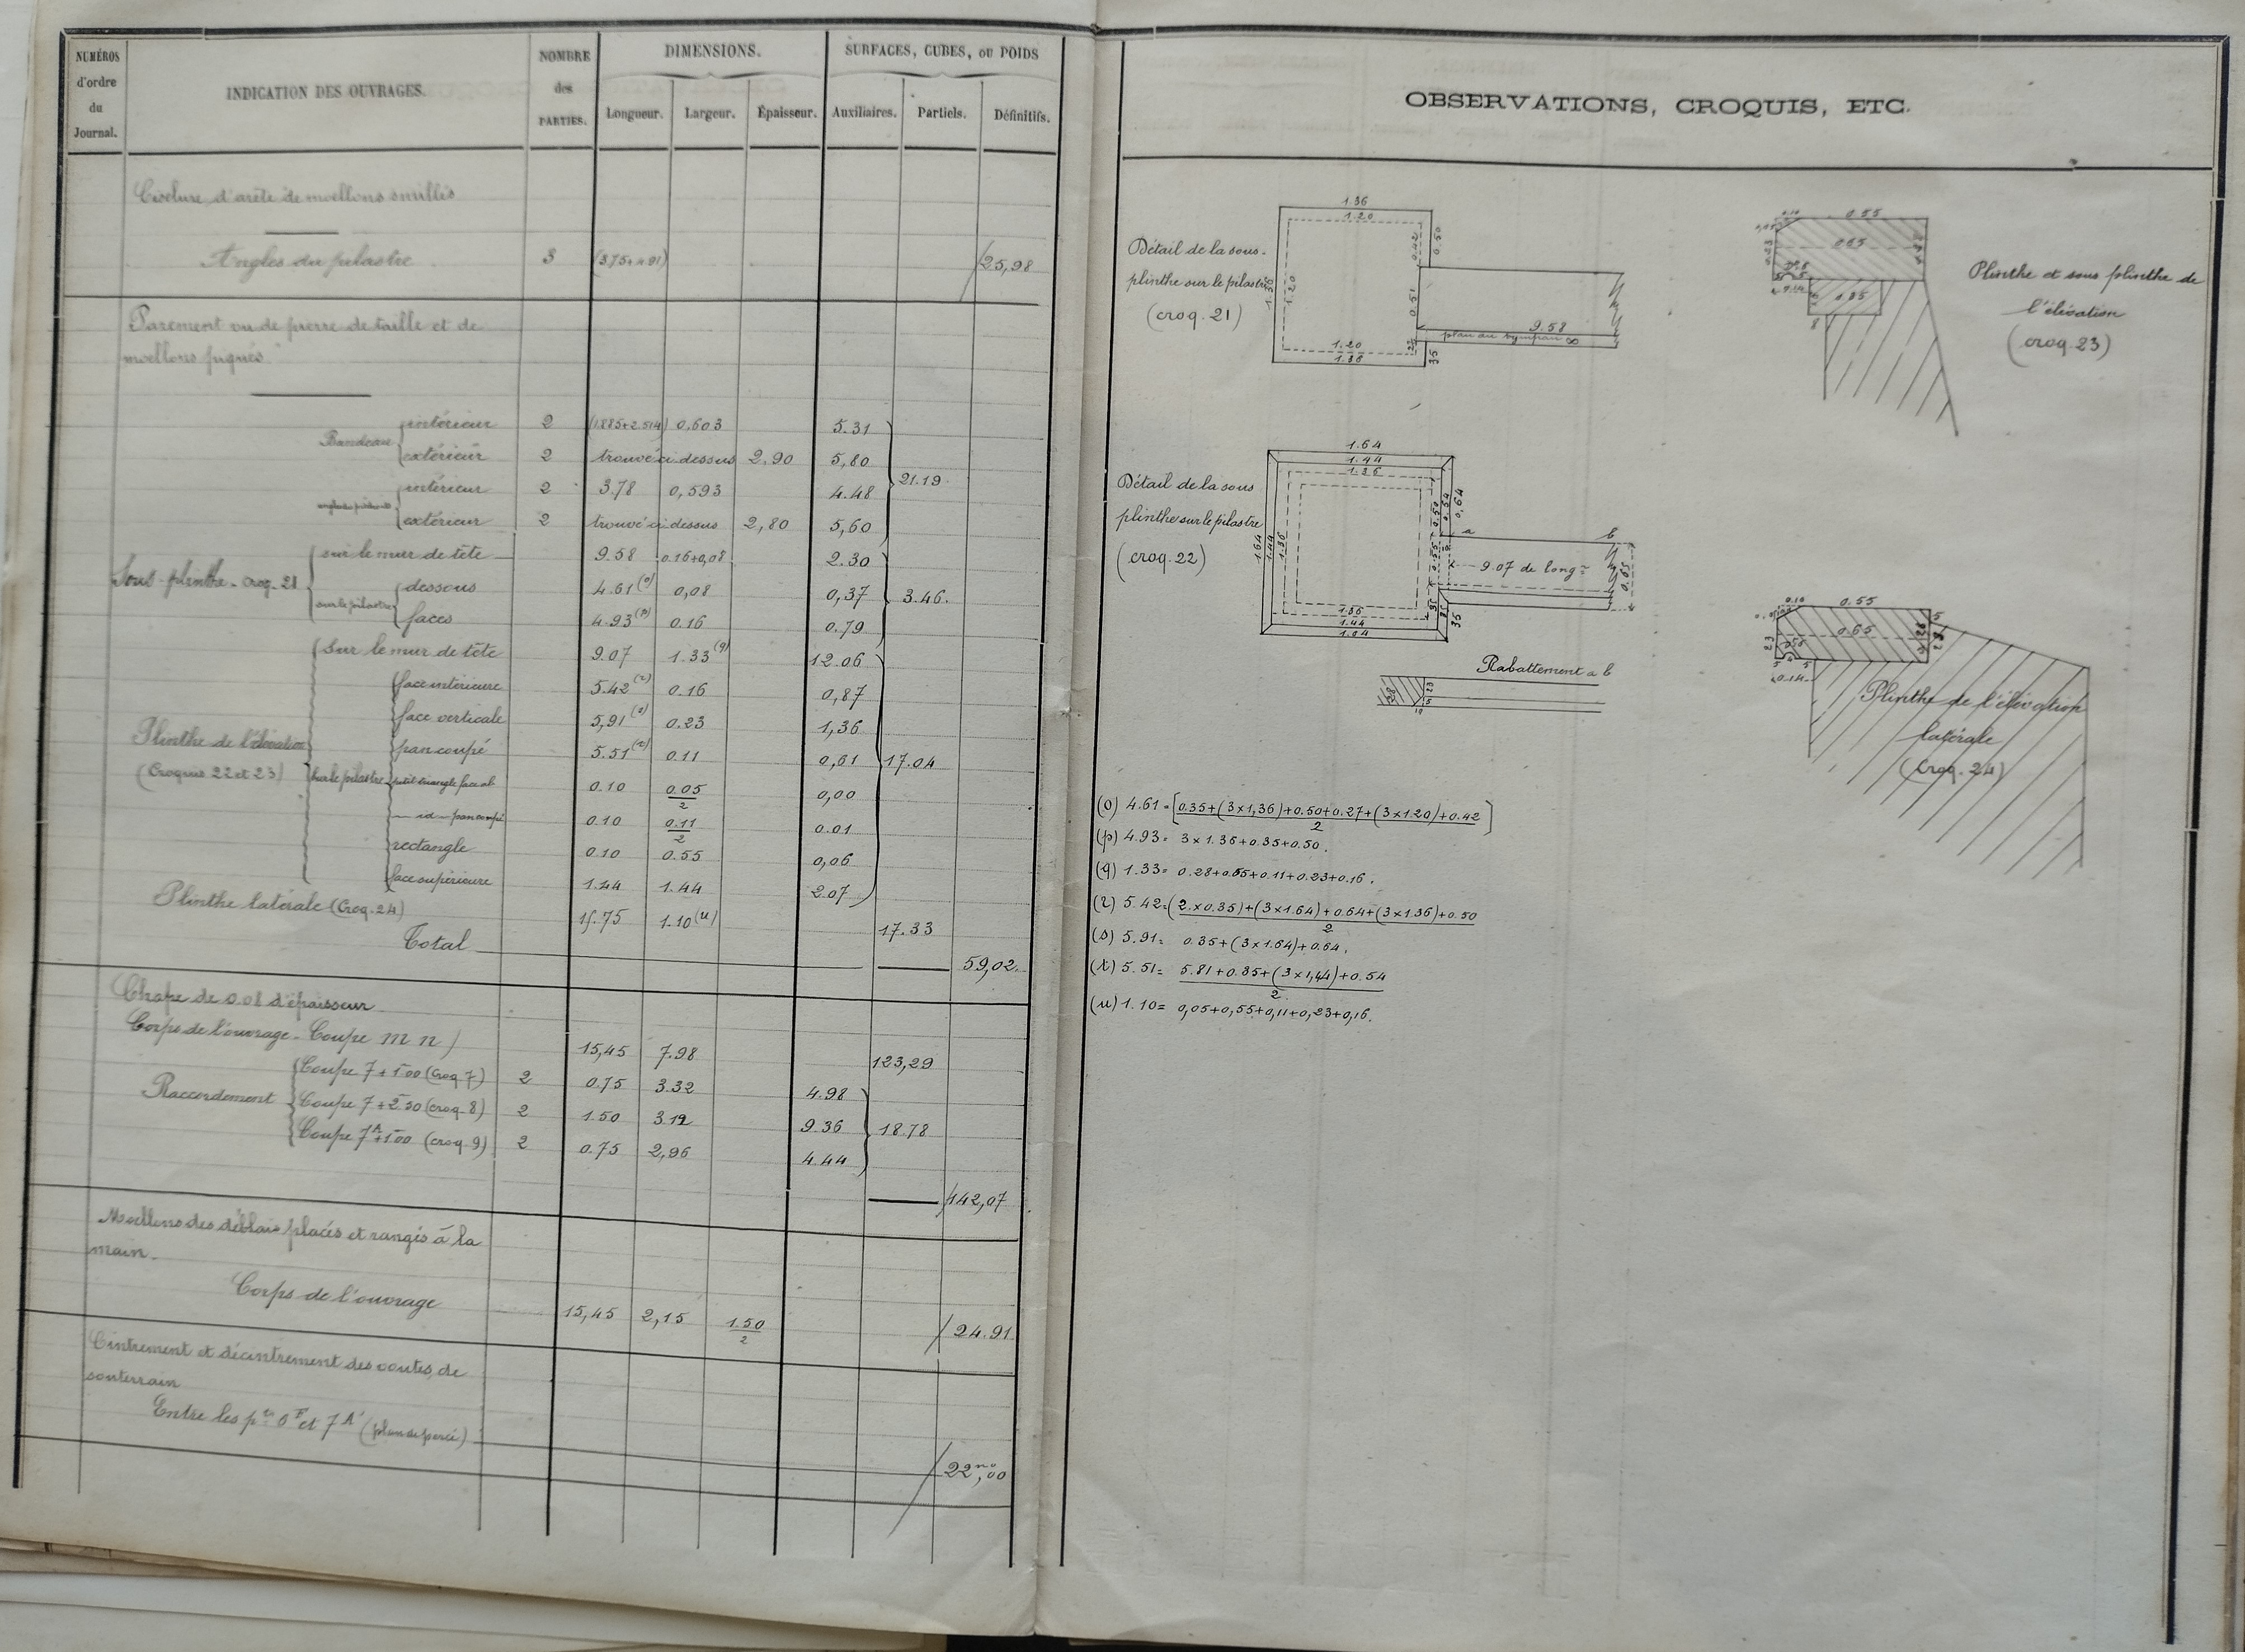 NUMÉROS d'ordre du Journal.
INDICATION DES OUVRAGES.
NOMBRE des PARTIES.
DIMENSIONS.
Longueur. Largeur. Épaisseur.
SURFACES, CUBES, ou POIDS
Auxiliaires. Partiels. Définitifs.
Ciselure d'arête de moellons smillés
Angles du pilastre 3 (3.75+4.91) 25,98
Parement vu de pierre de taille et de
moellons piqués
Bandeau intérieur 2 (1.885+2.514) 0,603 5.31
extérieur 2 trouvé ci dessus 2.90 5,80
21.19
intérieur 2 3.78 0,593 4.48
extérieur 2 trouvé ci dessus 2,80 5,60
Sous-plinthe - Croq. 21
sur le mur de tête 9.58 0.16+0,08 2.30
sur le pilastre dessous 4.61 (o) 0,08 0,37 3.46.
faces 4.93 (p) 0.16 0.79
Plinthe de l'élévation
(Croquis 22 et 23)
sur le mur de tête 9.07 1.33 (q) 12.06
sur le pilastre
face intérieure 5.42 (r) 0.16 0,87
face verticale 5,91 (s) 0.23 1,36
pan coupé 5.51 (t) 0.11 0,61 17.04
petit triangle face ab 0.10 0.05/2 0,00
id pan coupé 0.10 0.11/2 0.01
rectangle 0.10 0.55 0,06
face supérieure 1.44 1.44 2.07
Plinthe latérale (Croq. 24) 15.75 1.10 (u) 17.33
Total 59,02.
Chape de 0.08 d'épaisseur
Corps de l'ouvrage - Coupe m n) 15,45 7.98 123,29
Raccordement
Coupe 7+1.00 (Croq 7) 2 0.75 3.32 4.98
Coupe 7+2.50 (croq 8) 2 1.50 3.12 9.36 18.78
Coupe 7A+1.00 (croq. 9) 2 0.75 2,96 4.44
142,07
Moellons des déblais placés et rangés à la
main.
Corps de l'ouvrage 15,45 2,15 1.50/2 24.91
Cintrement et décintrement des voutes de
souterrain
Entre les pts 0F et 7A' (plan de percé) 22,00
OBSERVATIONS, CROQUIS, ETC.
Détail de la sous-
plinthe sur le pilastre
(croq. 21)
1.36
1.20
1.36
1.20
0.42
0.50
0.51
9.58
plan du tympan
1.20
1.36
35
0.10
0.55
0.65
0.14
8
Plinthe et sous plinthe de
l'élévation
(croq. 23)
Détail de la sous
plinthe sur le pilastre
(croq. 22)
1.64
1.44
1.36
1.64
1.44
1.36
0.50
0.54
0,64
0.55
a
b
9.07 de long
0.65
35
1.36
1.44
1.64
Rabattement a b
28
23
5
10
0.10
0.55
0.65
5
23
28
5
5
0.14
Plinthe de l'élévation
latérale
(Croq. 24)
(o) 4.61 = [0.35+(3×1,36)+0.50+0.27+(3×1.20)+0.42]
2
(p) 4.93 = 3×1.36+0.35+0.50.
(q) 1.33 = 0.28+0.55+0.11+0.23+0.16.
(r) 5.42 = (2.×0.35)+(3×1.64)+0.64+(3×1.36)+0.50
2
(s) 5.91 = 0.35+(3×1.64)+0.64.
(t) 5.51 = 5.81+0.35+(3×1,44)+0.54
2
(u) 1.10 = 0,05+0,55+0,11+0,23+0,16.